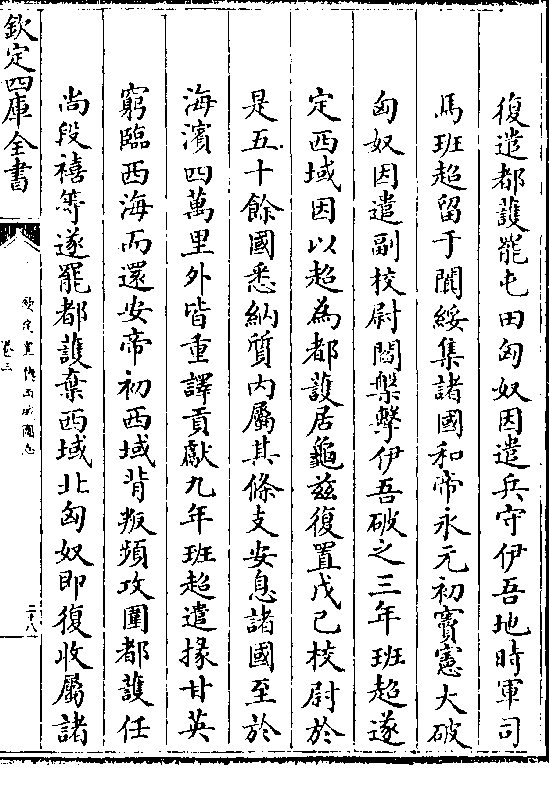 復遣都護罷屯田匈奴因遣兵守伊吾地時軍司
馬班超留于闐綏集諸國和帝永元初竇憲大破
匈奴因遣副校尉閻槃擊伊吾破之三年班超遂
定西域因以超為都護居龜兹復置戊己校尉於
是五十餘國悉納質内屬其條支安息諸國至於
海濱四萬里外皆重譯貢獻九年班超遣掾甘英
窮臨西海而還安帝初西域背叛頻攻圍都護任
尚段禧等遂罷都護棄西域北匈奴即復收屬諸
欽定四庫全書
欽定皇輿西域圖志
卷三
二十八